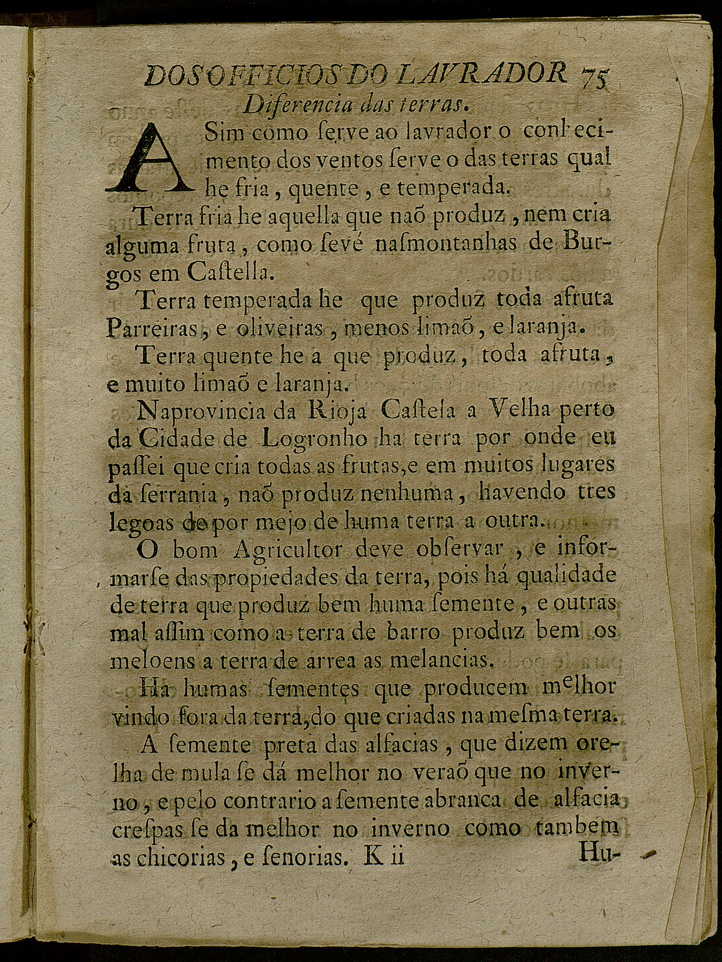 DOS OFFICIOS DO LAVRADOR 75
Diferencia das terras.
ASim como ſerve ao lavrador o conheci-
mento dos ventos ſerve o das terras qual
he fria, quente, e temperada.
Terra fria he aquella que naõ produz, nem cria
alguma fruta, como ſevé naſmontanhas de Bur-
gos em Caſtella.
Terra temperada he que produz toda afruta
Parreiras, e oliveiras, menos limaõ, e laranja.
Terra quente he a que produz, toda afruta,
e muito limaõ e laranja.
Naprovincia da Rioja Caſtela a Velha perto
da Cidade de Logronho ha terra por onde eu
paſſei que cria todas as frutas, e em muitos lugares
da ſerrania, naõ produz nenhuma, havendo tres
legoas de por mejo de huma terra a outra.
O bom Agricultor deve obſervar, e infor-
marſe das propiedades da terra, pois há qualidade
de terra que produz bem huma ſemente, e outras
mal aſſim como a terra de barro produz bem os
meloens a terra de arrea as melancias.
Ha humas ſementes que producem melhor
vindo fora da terra, do que criadas na meſma terra.
A ſemente preta das alfacias, que dizem ore-
lha de mula ſe dá melhor no veraõ que no inver-
no, e pelo contrario a ſemente abranca de alfacia
creſpas ſe da melhor no inverno como tambem
as chicorias, e ſenorias. K ii Hu-